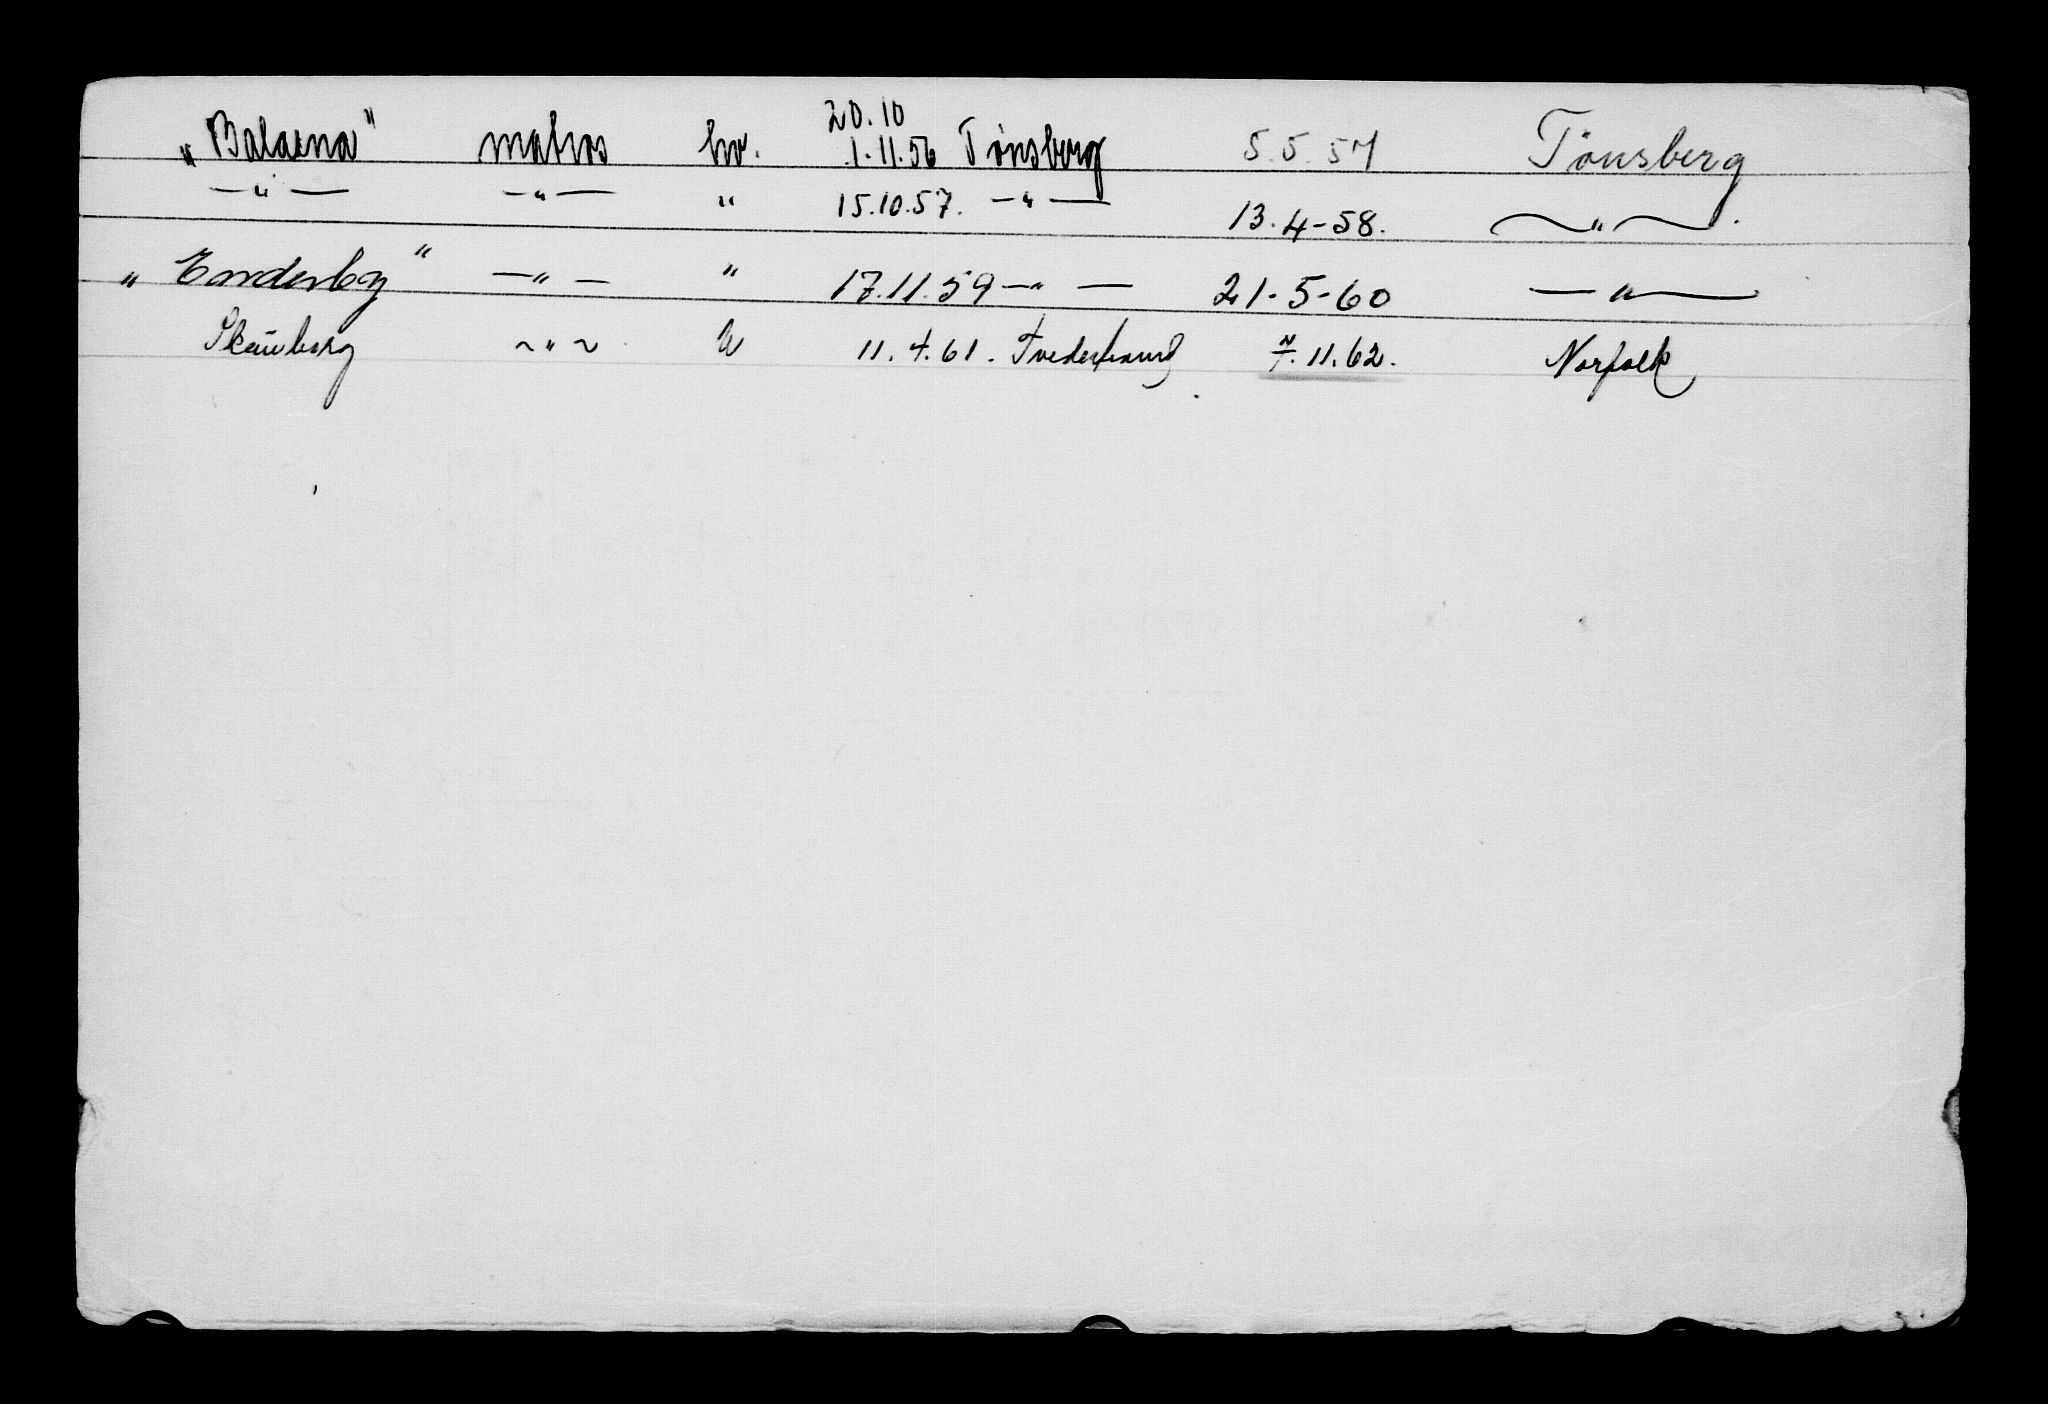 20.10
„Balaena" matros hv. 1.11.56 Tønsberg 5.5.57 Tönsberg
—"— —"— " 15.10.57. —"— 13.4-58. —"—.
„Enderby" —"— " 17.11.59 —"— 21-5-60 —"—
Skauberg ~"~ U 11.4.61. Tvedestrand 7.11.62. Norfolk